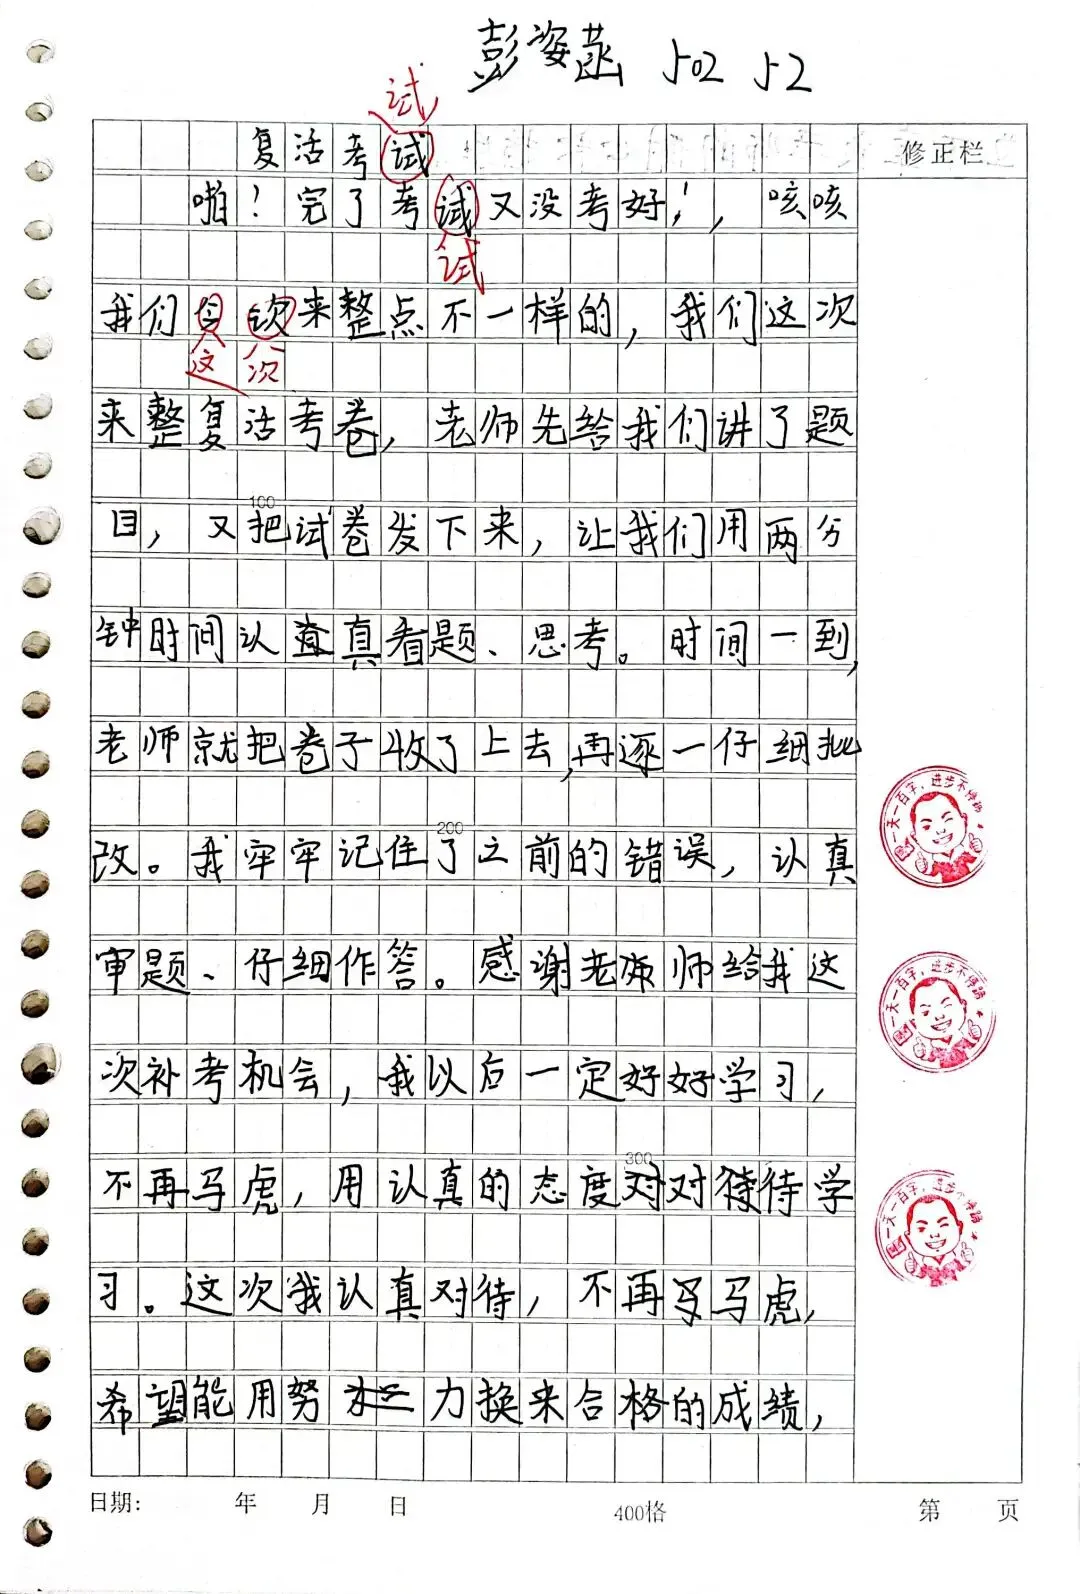 彭姿菡 502 52
试
复活考试
修正栏
啪！完了考试又没考好！，咳咳
试
我们今次来整点不一样的，我们这次
这次
来整复活考卷，老师先给我们讲了题
100
目，又把试卷发下来，让我们用两分
钟时间认真看题、思考。时间一到，
老师就把卷子收了上去，再逐一仔细批
一天一百字，进步不停蹄
200
改。我牢牢记住了之前的错误，认真
审题、仔细作答。感谢老师给我这
一天一百字，进步不停蹄
次补考机会，我以后一定好好学习，
300
不再马虎，用认真的态度对待学
一天一百字，进步不停蹄
习。这次我认真对待，不再马虎，
希望能用努力换来合格的成绩，
日期: 年 月 日 400格 第 页